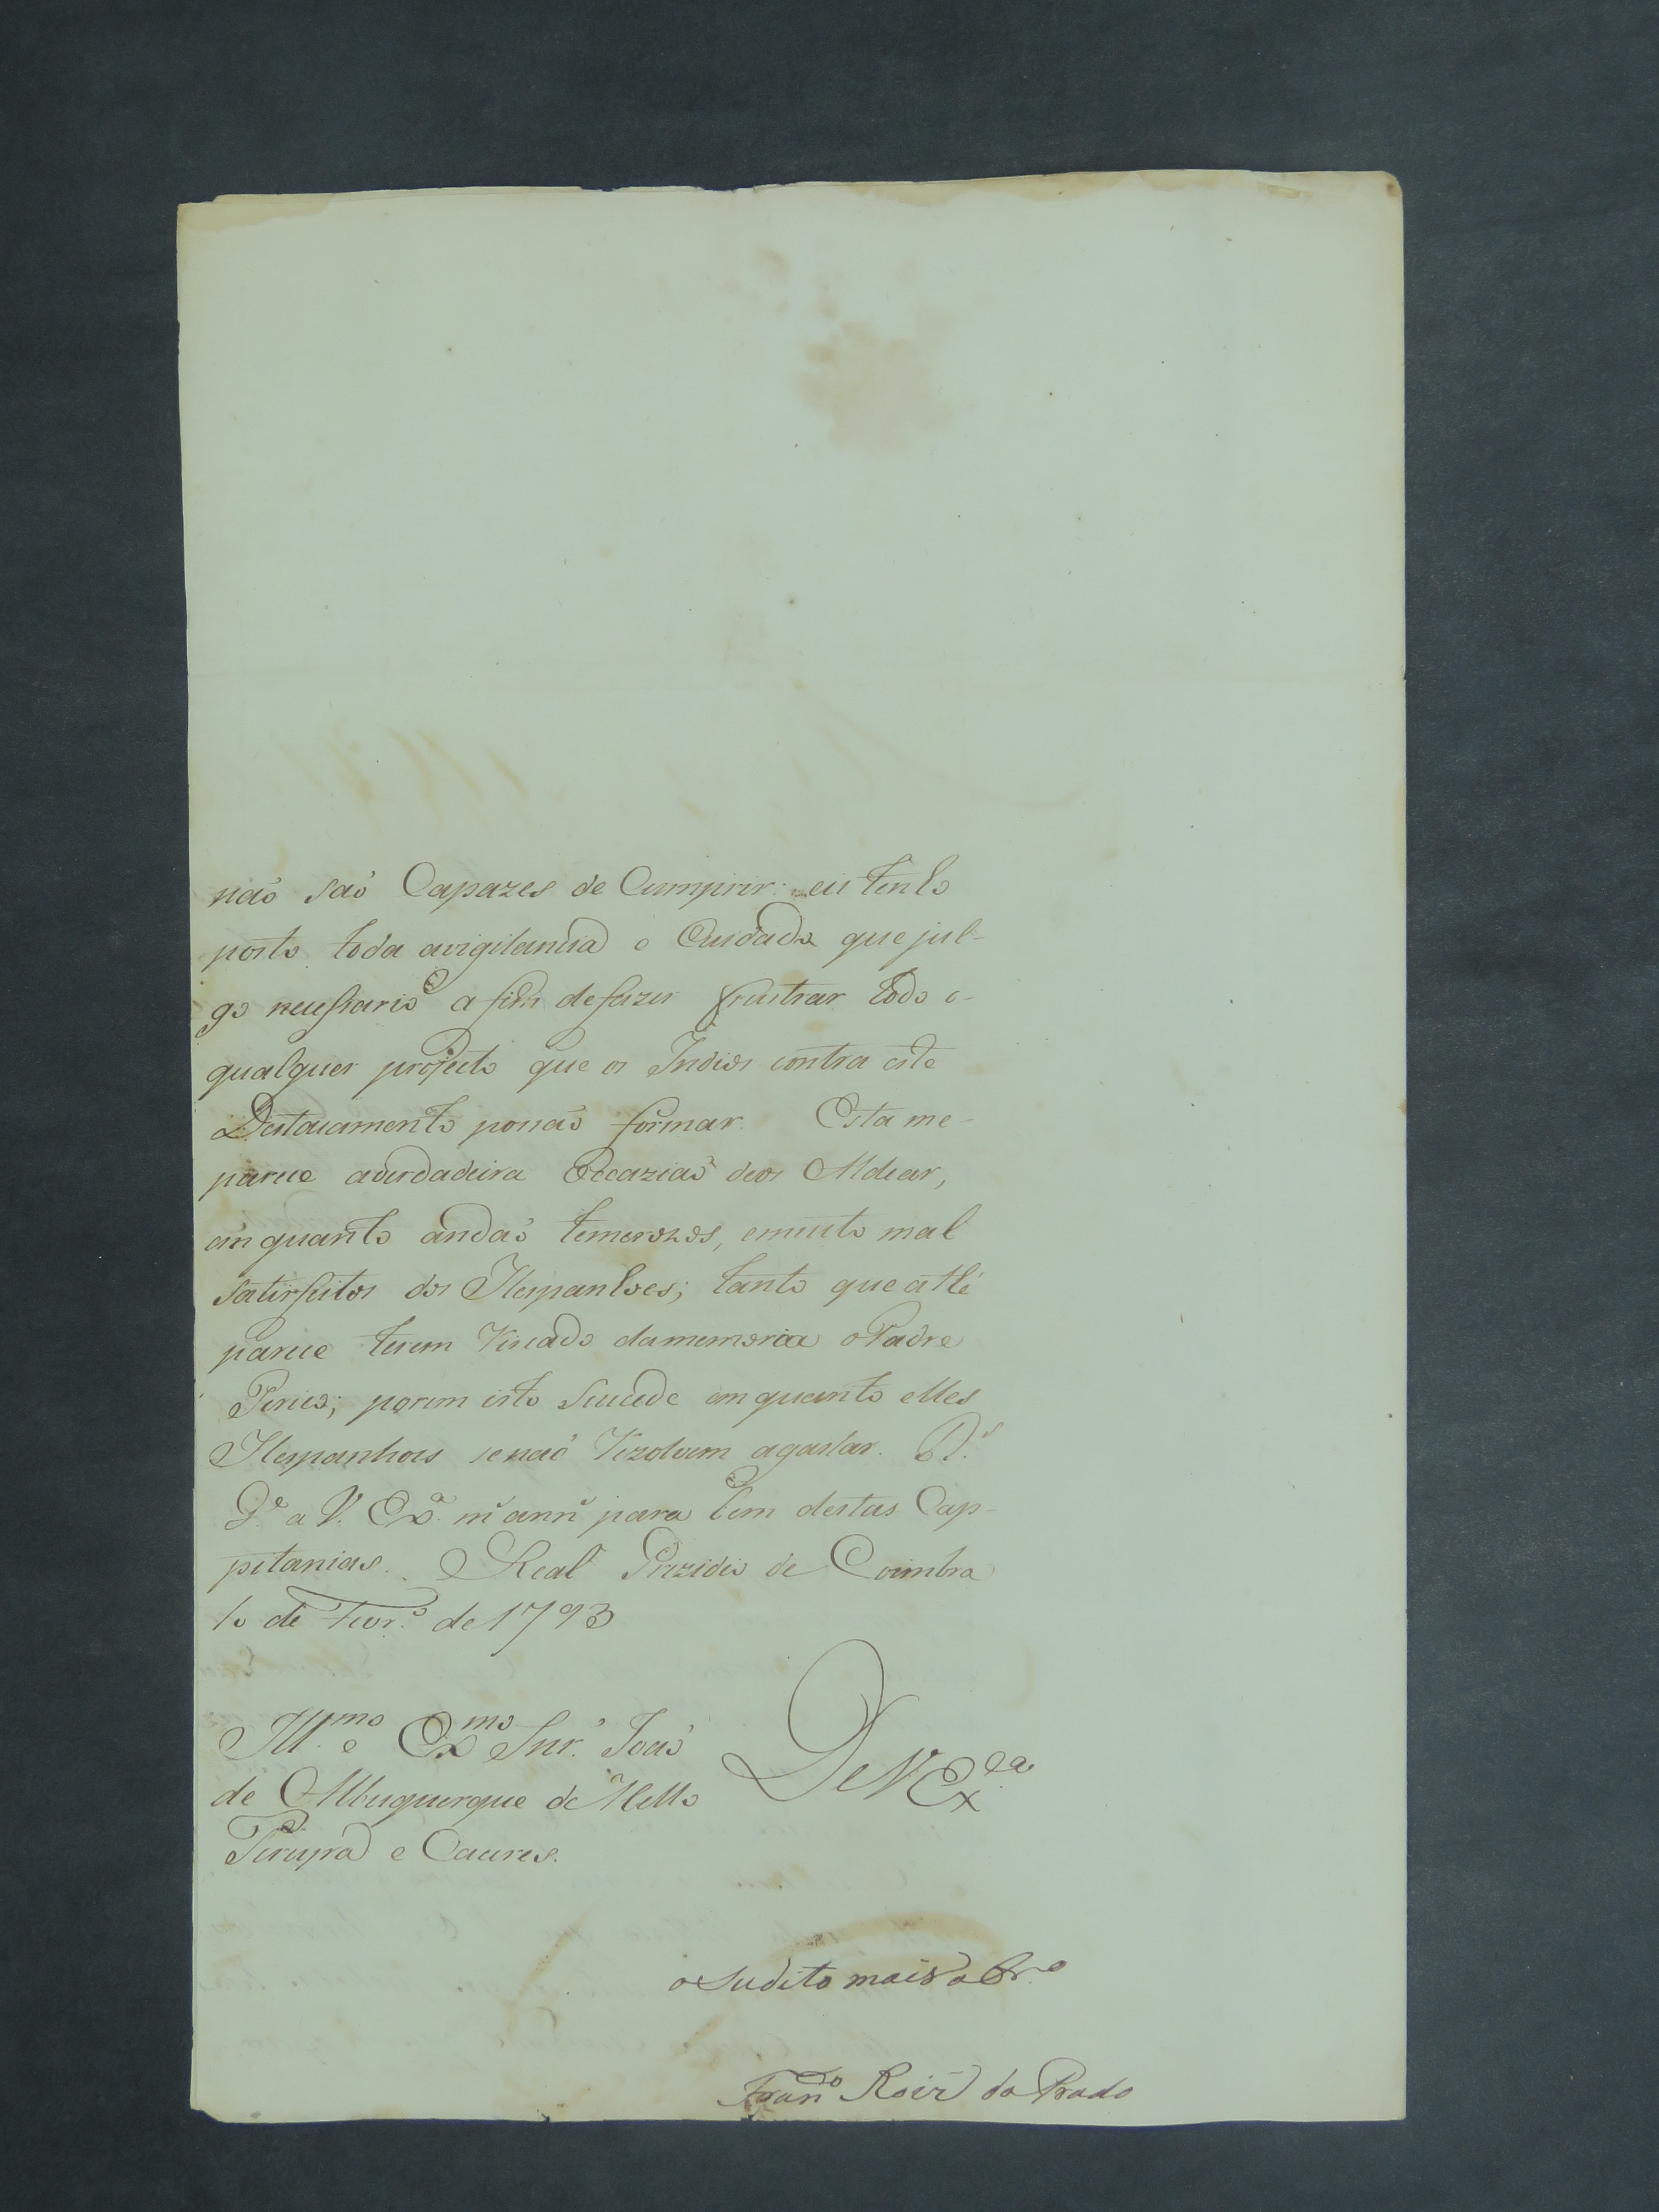 naõ saõ Capazes de Cumprir: eu tenho
posto toda avigilancia e Cuidado que jul-
go necessario a fim defazer frustrar todo o-
qualquer projecto que os Indios contra este
Destacamento possaõ formar. Esta me-
parece averdadeira Occaziaõ deos Aldear,
em quanto andaõ temerozos, emuito mal
satisfeitos dos Hespanhoes; tanto que athé
parece terem riscado damemoria oPadre
porem isto Succede em quanto elles
Hespanhoes se naõ rezolvem agastar. D.s
G.e a V. Ex.a m.s ann.s para bem destas Cap-
pitanias. Real Prezidio de Coimbra
10 de Fevr.o de 1793
Ill.mo e Ex.mo Snr. Joaõ
de Albuquerque de Mello
Pereyra e Caceres.
De V. Ex.ca
o Sudito mais obr.o
Fran.co Roiz do Prado